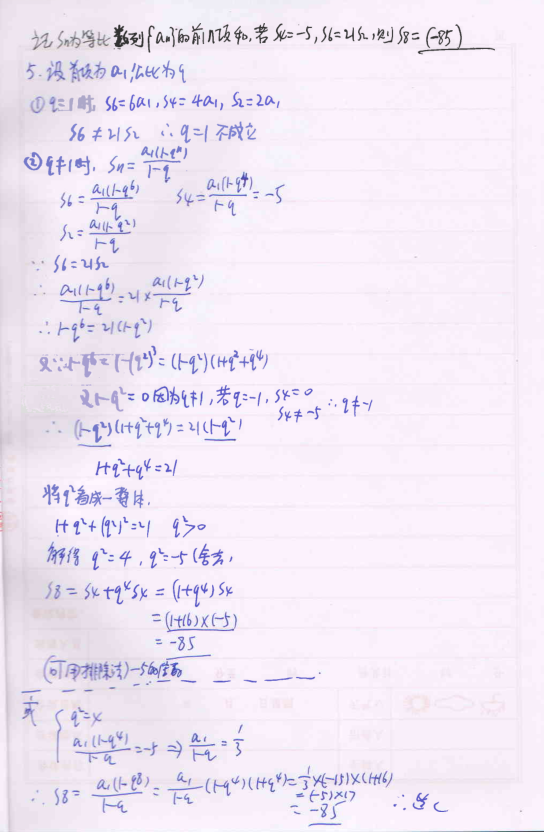 记Sn为等比数列{an}的前n项和,若S4=-5,S6=21S2,则S8=(-85)
5.设首项为a1,公比为q
①q=1时, S6=6a1,S4=4a1, S2=2a1
S6≠21S2 ∴q=1不成立
②q≠1时, Sn=a1(1-qⁿ)/1-q
S6=a1(1-q⁶)/1-q S4=a1(1-q⁴)/1-q=-5
S2=a1(1-q²)/1-q
∵S6=21S2
∴a1(1-q⁶)/1-q=21×a1(1-q²)/1-q
∴1-q⁶=21(1-q²)
又∵1-q⁶=1-(q²)³=(1-q²)(1+q²+q⁴)
1-q²=0因为q≠1,若q=-1,S4=0
S4≠-5 ∴q≠-1
∴(1-q²)(1+q²+q⁴)=21(1-q²)
1+q²+q⁴=21
将q²看成一整体,
1+q²+(q²)²=21 q²>0
解得q²=4,q²=-5(舍去,
S8=S4+q⁴S4=(1+q4)S4
=(1+16)×(-5)
=-85
(可用排除法)-5的倍数
或{q²=4
a1(1-q⁴)/1-q=-5⇒a1/1-q=1/3
∴S8=a1(1-q8)/1-q=a1/1-q(1-q⁴)(1+q⁴)=1/3×(-15)×(1+16)
=(-5)×17
=-85 ∴选C